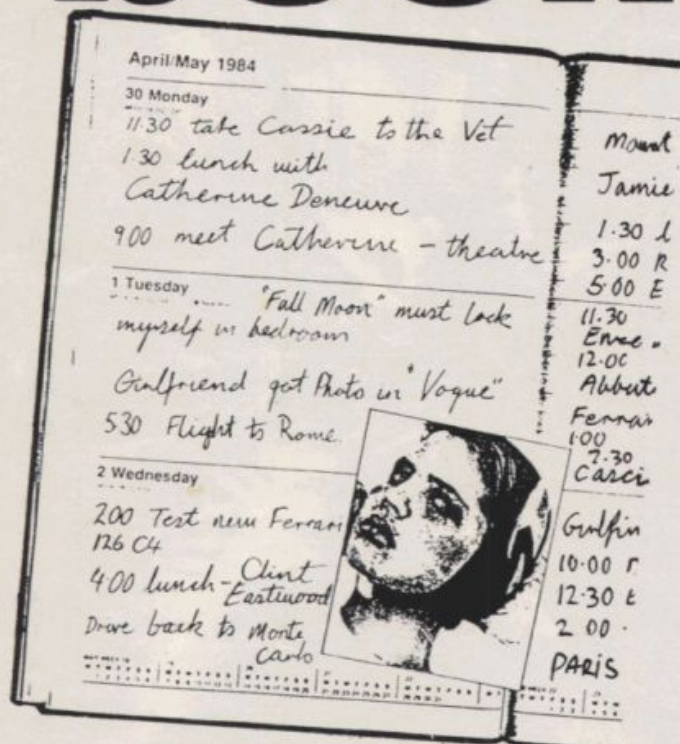 April/May 1984
30 Monday
11.30 take Cassie to the Vet
1.30 lunch with
Catherine Deneuve
9 00 meet Catherine - theatre
1 Tuesday
"Full Moon" must lock
myself in bedroom
Girlfriend got Photo in "Vogue"
5 30 Flight to Rome
2 Wednesday
2 00 Test new Ferrari
126 C4
4 00 lunch - Clint
Eastwood
Drove back to Monte
Carlo
Jamie
1.30 l
3.00 R
5.00 E
11.30
12.00
Ferrar
1.00
2.30
10.00 r
12.30 t
2 00
PARIS